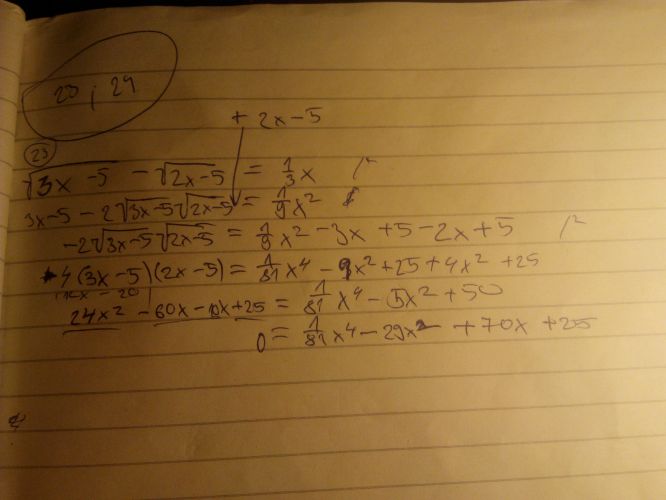 20 ; 24
+ 2x - 5
23
√3x - 5 - √2x - 5 = 1/3 x /²
3x - 5 - 2√3x - 5 √2x - 5 = 1/9 x²
-2√3x - 5 √2x - 5 = 1/9 x² - 3x + 5 - 2x + 5 /²
4 (3x - 5)(2x - 5) = 1/81 x⁴ - 9x² + 25 + 4x² + 25
24x² - 60x - 10x + 25 = 1/81 x⁴ - 5x² + 50
0 = 1/81 x⁴ - 29x² + 70x + 25